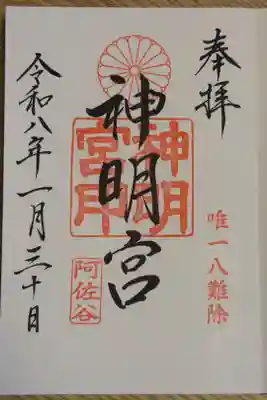 奉拝
唯一八難除
神明宮
神明宮
阿佐谷
令和八年一月三十日